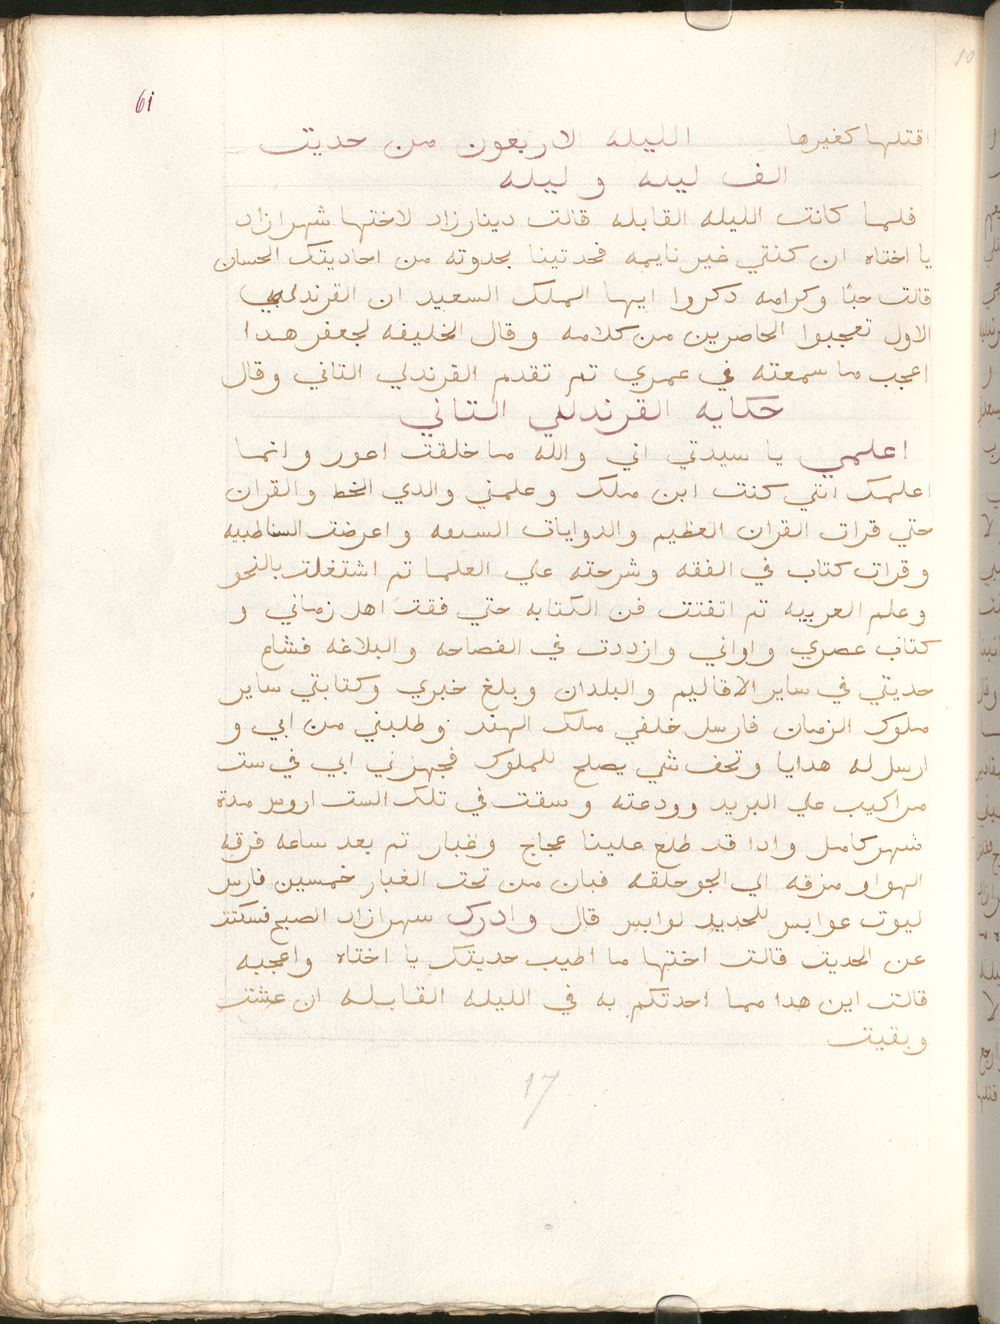 61
اقتلها كغيرها الليله الاربعون من حديت
الف ليله و ليله
فلما كانت الليله القابله قالت دينارزاد لاختها شهرازاد
يا اختاه ان كنتي غير نايمه فحدتينا بحدوته من احاديتك الحسان
قالت حبًا وكرامه دكروا ايها الملك السعيد ان القرندلي
الاول تعجبوا الحاضرين من كلامه وقال الخليفه لجعفر هدا
اعجب ما سمعته في عمري تم تقدم القرندلي التاني وقال
حكايه القرندلي التاني
اعلمي يا سيدتي اني والله ما خلقت اعور وانما
اعلمك انني كنت ابن ملك وعلمني والدي الخط والقران
حتي قرات القران العظيم والروايات السبعه واعرضت الشاطبيه
وقرات كتاب في الفقه وشرحته علي العلما تم اشتغلت بالنحو
وعلم العربيه تم اتقنت فن الكتابه حتي فقت اهل زماني و
كتاب عصري واواني وازددت في الفصاحه والبلاغه فشاع
حديتي في ساير الاقاليم والبلدان وبلغ خبري وكتابتي ساير
ملوك الزمان فارسل خلفي ملك الهند وطلبني من ابي و
ارسل له هدايا وتحف شي يصلح للملوك فجهزني ابي في ست
مراكيب علي البريد وودعته وسقت في تلك الست اروس مدة
شهر كامل وادا قد طلع علينا عجاج وغبار تم بعد ساعه فرقه
الهوا و مزقه الي الجو حلقه فبان من تحت الغبار خمسين فارس
ليوت عوابس للحديد لوابس قال وادرك شهرازاد الصبح فسكتت
عن الحديت قالت اختها ما اطيب حديتك يا اختاه واعجبه
قالت اين هدا مما احدتكم به في الليله القابله ان عشت
وبقيت
17
10